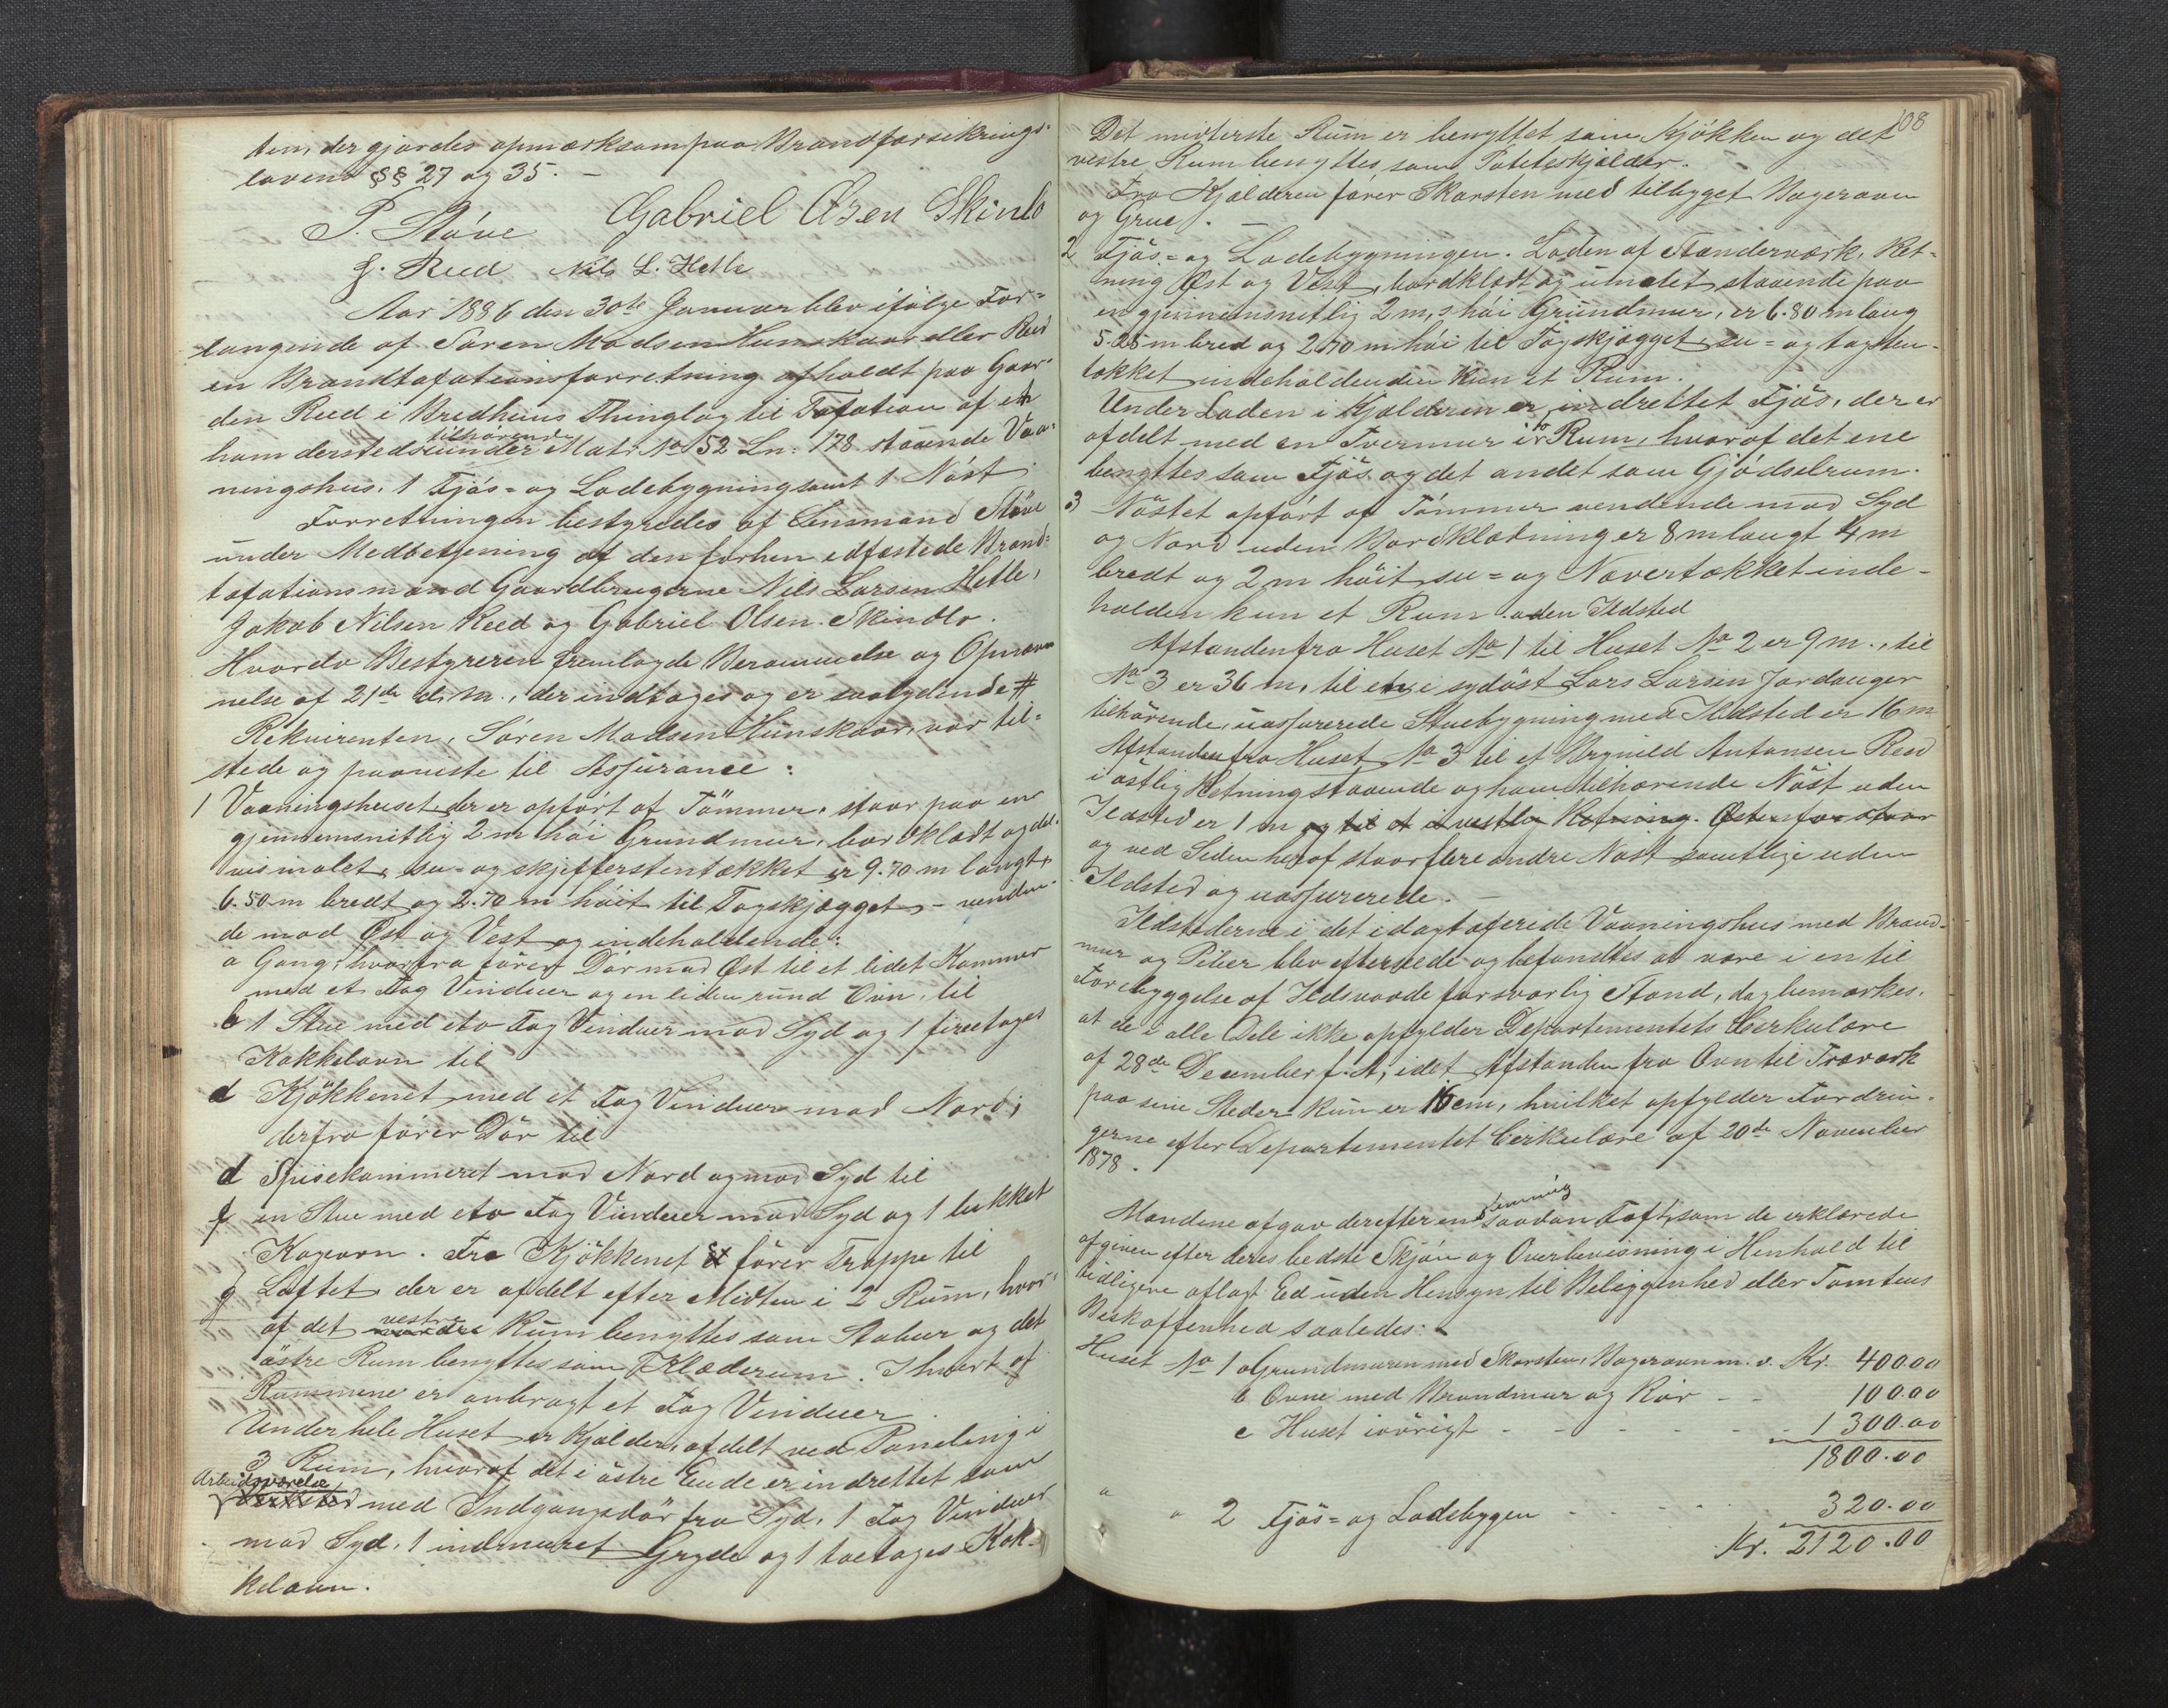 ten, der gjordes opmærksom paa Brandforsikrings-
lovens §§ 27 og 35. —
P. Støve Gabriel Olsen Skinlo
J. Reed Nils L. Hetle
Aar 1886 den 30te Januar blev ifølge For-
langende af Søren Madsen Hunskaar eller Reed
en Brandtaxationsforretning afholdt paa Gaar-
den Reed i Bredheims Thinglag til Taxation af et
ham dersteds tilhørende under Matr No 52 Ln. 178 staaende Vaa-
ningshus, 1 Fjøs- og Ladebygning samt 1 Nøst
Forretningen bestyredes af Lensmand Støve
under Medbetjening af den forhen edfæstede Brand-
taxationsmænd Gaardbrugerne Nils Larsen Hetle,
Jakob Nilsen Reed og Gabriel Olsen Skindlo.
Hvorda Bestyreren fremlagde Berammelse og Opnæv-
nelse af 21de d. M., der indtages og er saalydende #
Rekvirenten, Søren Madsen Hunskaar, var til-
stede og paaviste til Assurance:
1 Vaaningshuset, der er opført af Tømmer, staar paa en
gjennemsnitlig 2 m høi Grundmur, bordklædt og del-
vis malet, su- og skjefferstentækket er 9.70 m langt,
6.50 m bredt og 2.70 m høit til Tagskjægget, - venden-
de mod Øst og Vest og indeholdende:
a Gang, hvorfra fører Dør mod Øst til et lidet Kammer
med et Fag Vinduer og en liden rund Ovn, til
b 1 Stue med eto Fag Vinduer mod Syd og 1 fireetages
Kakkelovn til
d Kjøkkenet med et Fag Vinduer mod Nord;
derfra fører Dør til
d Spisekammeret mod Nord og mod Syd til
f en Stue med eto Fag Vinduer mod Syd og 1 lukket
Kogeovn. Fra Kjøkkenet fører Trappe til
g Loftet der er afdelt efter Midten i 2 Rum, hvor-
af det vestre Rum benyttes som Stabur og det
østre Rum benyttes som Klæderum. I hvert af
Rummene er anbragt et Fag Vinduer.
Under hele Huset er Kjælder, afdelt ved Paneling i
3 Rum, hvoraf det i østre Ende er indrettet som
Arbeidsværelse med Indgangsdør fra Syd, 1 Fag Vinduer
mod Syd, 1 indmuret Gryde og 1 toetages Kak-
kelovn.
108
Det midterste Rum er benyttet som Kjøkken og det
vestre Rum benyttes som Poteteskjælder.
Fra Kjælderen fører Skorsten med tilbygget Bagerovn
og Grue. —
2 Fjøs- og Ladebygningen. Laden af Stænderværk, Ret-
ning Øst og Vest, bordklædt og umalet, staaende paa
en gjennemsnitlig 2 m, høi Grundmur, er 6.80 m lang
5.25 m bred og 2.70 m høi til Tagskjægget, su- og tagsten-
tækket indeholdende kun et Rum.
Under Laden i Kjælderen er indrettet Fjøs, der er
afdelt med en Tvermur i to Rum, hvoraf det ene
benyttes som Fjøs og det andet som Gjødselrum.
3 Nøstet opført af Tømmer vendende mod Syd
og Nord uden Bordklædning er 8 m langt 4 m
bredt og 2 m høit, su- og Nævertækket inde-
holden kun et Rum uden Ildsted
Afstanden fra Huset No 1 til Huset No 2 er 9 m., til
No 3 er 36 m, til en i sydøst Lars Larsen Jordanger
tilhørende, uassurerede Stuebygning med Ildsted er 16 m
Afstanden fra Huset No 3 til et Brynild Antonsen Reed
i østlig Retning staaende og ham tilhørende Nøst uden
Ildsted er 1 m og til et i vestlig Retning. Østenfor staar
og ved Siden heraf staar flere andre Nøst samtlige uden
Ildsted og uassurerede. —
Ildstederne i det idag taxerede Vaaningshus med Brand-
mur og Piber blev efterseede og befandtes at være i en til
Forebyggelse af Ildsvaade forsvarlig Stand, dog bemærkes,
at de i alle Dele ikke opfylder Departementets Cirkulære
af 28de December f. A, idet Afstanden fra Ovn til Træværk
paa sine Steder kun er 16 cm, hvilket opfylder Fordrin-
gerne efter Departementet Cirkulære af 20de November
1878.
Mændene afgav derefter en saadan Taxt, som de erklærede
afgiven efter deres bedste Skjøn og Overbevisning i Henhold til
tidligere aflagt Ed uden Hensyn til Beliggenhed eller Tomtens
Beskaffenhed saaledes:
Huset No 1 a Grundmuren med Skorsten, Bagerovn m. v. Kr. 400.00
b Ovne med Brandmur og Rør - - 100.00
c Huset iøvrigt - - - - - - 1300.00
1800.00
" " 2 Fjøs- og Ladebygen - - - - 320.00
Kr. 2120.00